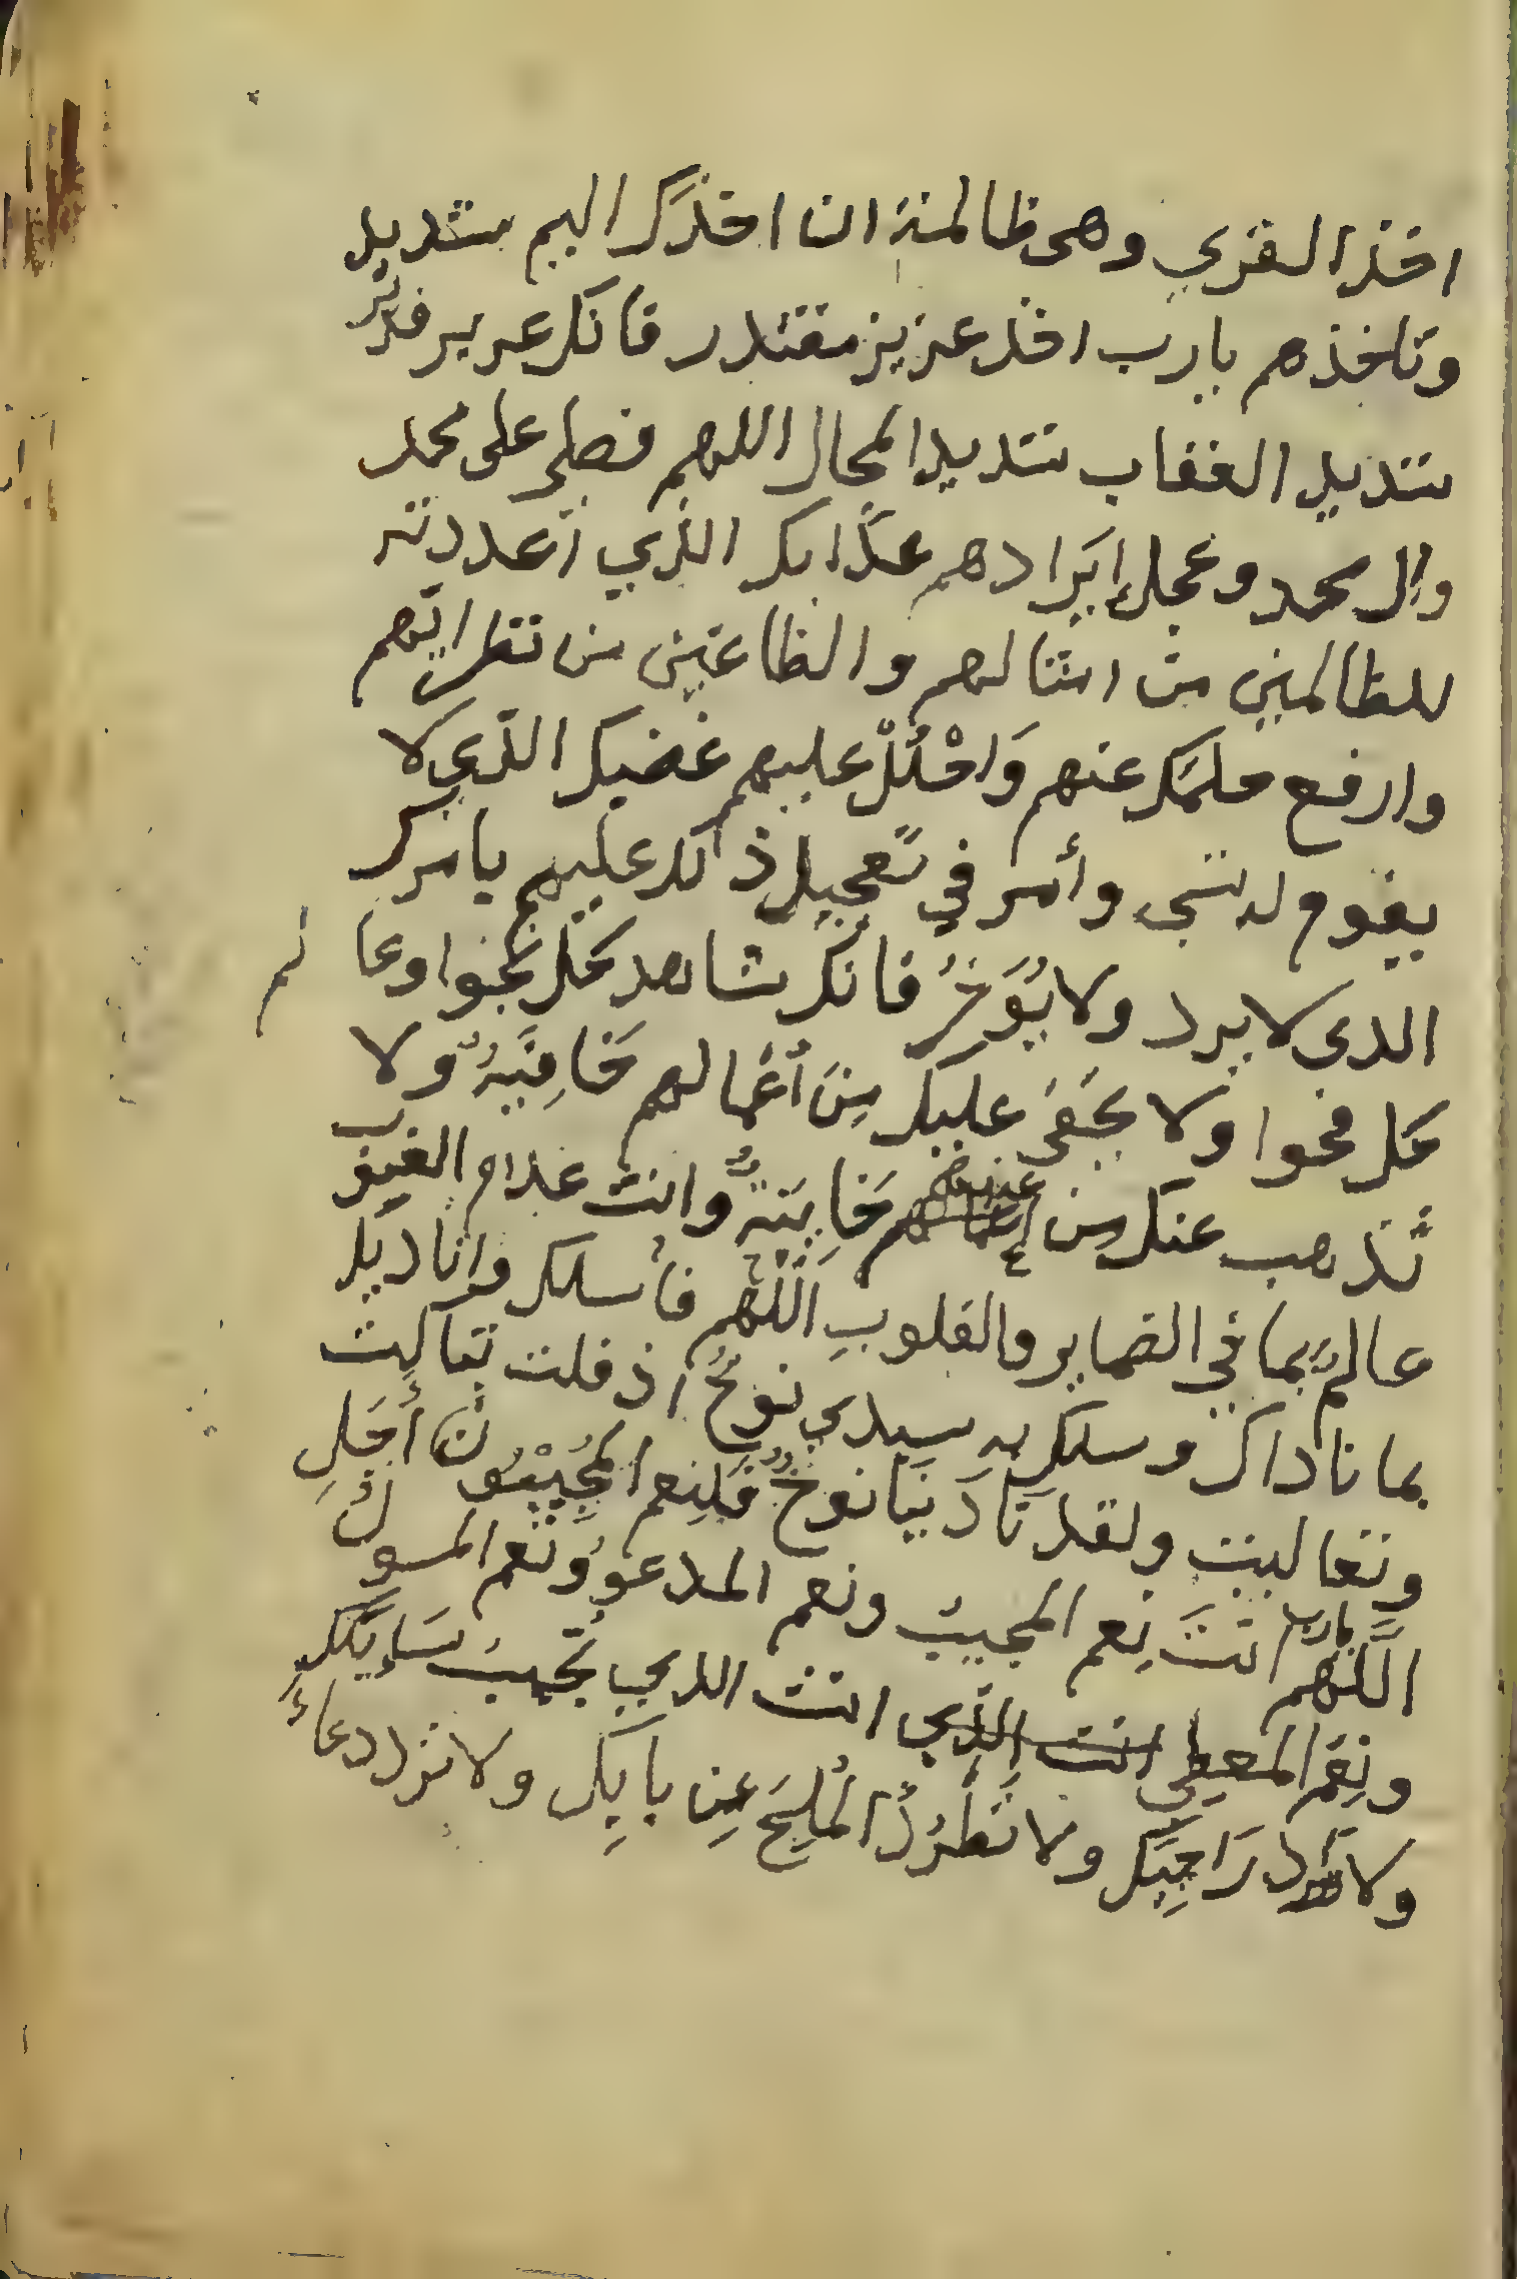 اخذ القري وهى ظالمة ان اخذك اليم شديد
وتاخذهم يارب اخذ عزيز مقتدر فانك عزيز قدير
شديد العقاب شديد المحال اللهم فصلى على محمد
وال محمد وعجل إيرادهم عذابك الذي اعددته
للظالمين من امثالهم والطاغين من نظرائهم
وارفع حلمك عنهم وَاحْلُلْ عليهم غضبك الذي لا
يقوم له شىء وأمر في تعجيل ذالك عليهم بامرك
الذي لا يرد ولا يُوَخرُ فانك شاهد كل نجوا وعالم
كل فحوا ولا يخفى عليك مِنَ أعمالهم خَافِيَةٌ ولا
تذهب عنك من خَايِنَةٌ وانت علام الغيوب
عالمٌ بما في الضماير والقلوبِ اللَّهُم فأسلك واناديك
بما ناداك وسلك به سيدي نوحٌ اذ قلت تباركت
وتعاليت ولقد نادَينا نوحٌ فلنِعم المُجِيْبُون أجَلِ
اللَّهُم يارب انتَ نِعم المجيبُ ونعم المدعوُ ونعم المسول
ونِعْمَ المعطي انت الذي انت الذي لا تُخيبُ سَايَلك
ولا تَرد رَاجِيَك ولا تَطْرُدُ المُلِحَ عِن بابِك ولا ترد دعاءَ